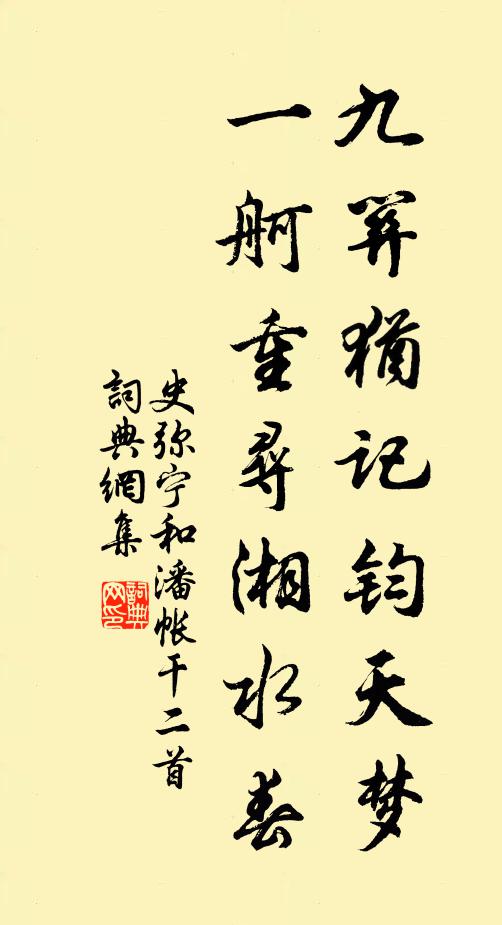 九關猶记钧天梦
一舸重尋湘水春
史弥宁和潘帐干二首
詞典網集
詞典网印